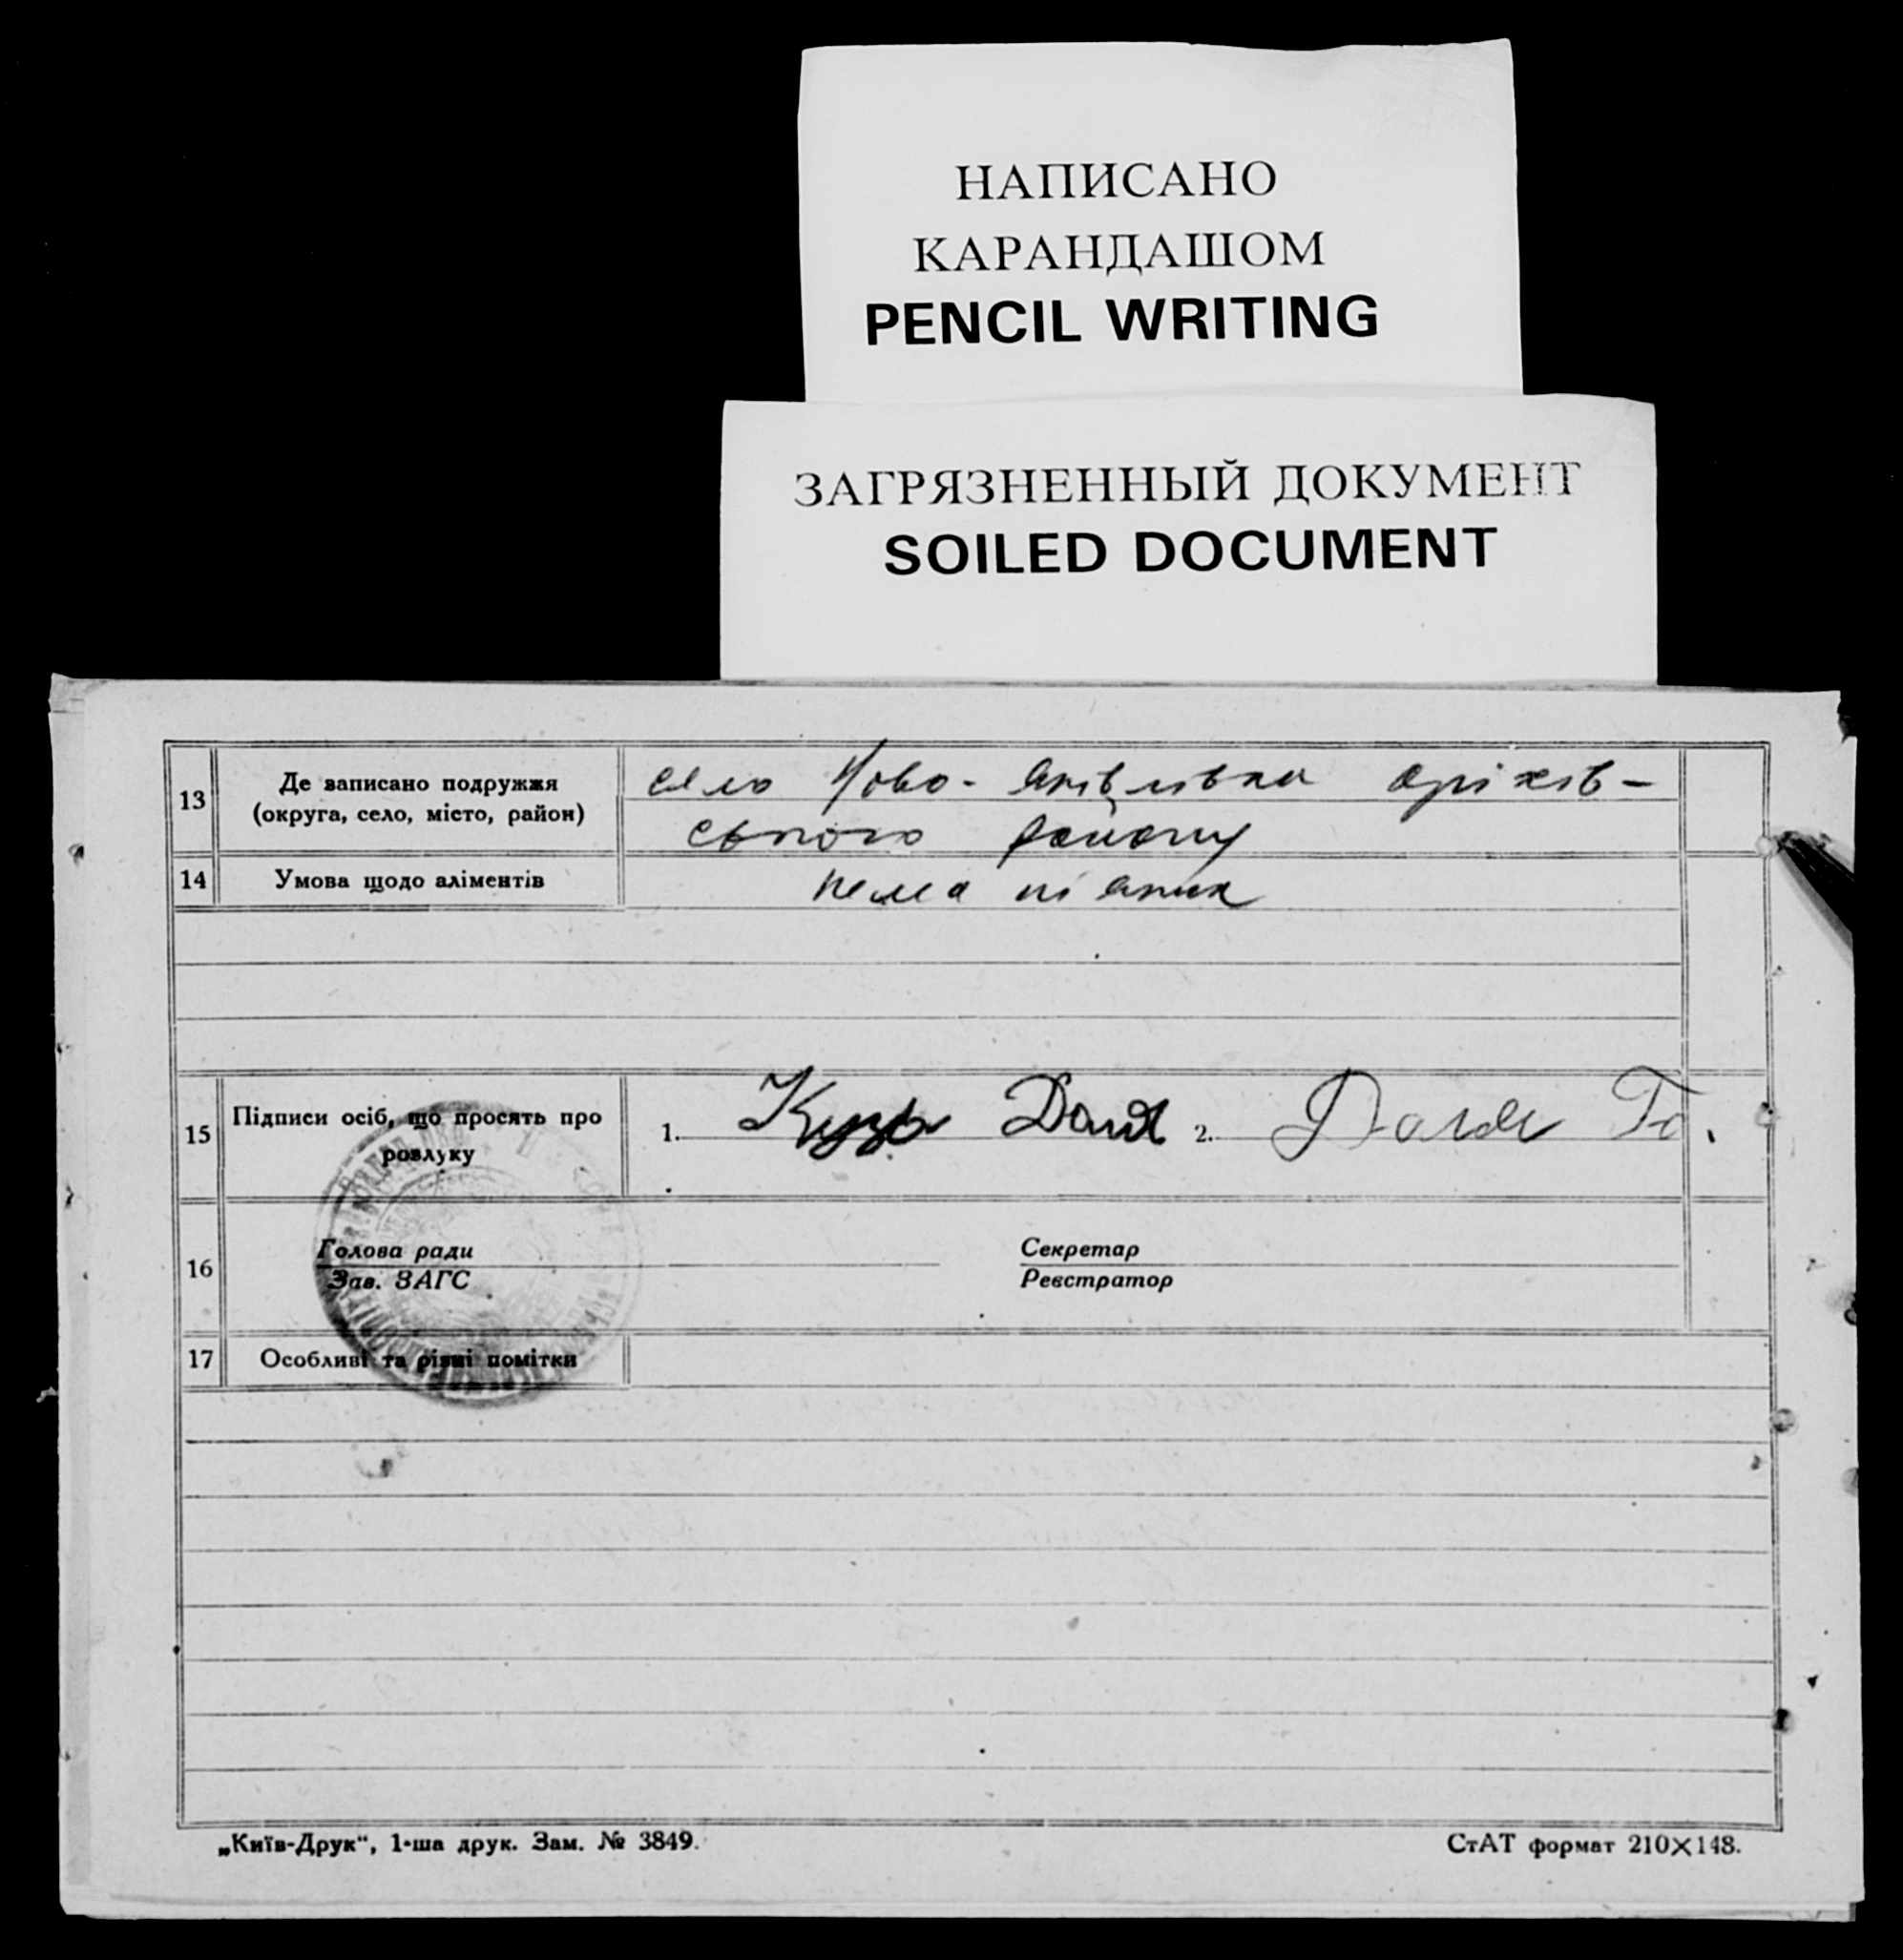 НАПИСАНО
КАРАНДАШОМ
PENCIL WRITING
ЗАГРЯЗНЕННЫЙ ДОКУМЕНТ
SOILED DOCUMENT
13 Де записано подружжя (округа, село, місто, район) село Ново-Яківлівка Оріхів-
ського району
14 Умова щодо аліментів нема ні яких
15 Підписи осіб, що просять про розлуку 1. 2.
16 Голова ради Секретар
Зав. ЗАГС Реєстратор
17 Особливі та різні помітки
„Київ-Друк“, 1-ша друк. Зам. № 3849. СтАТ формат 210×148.